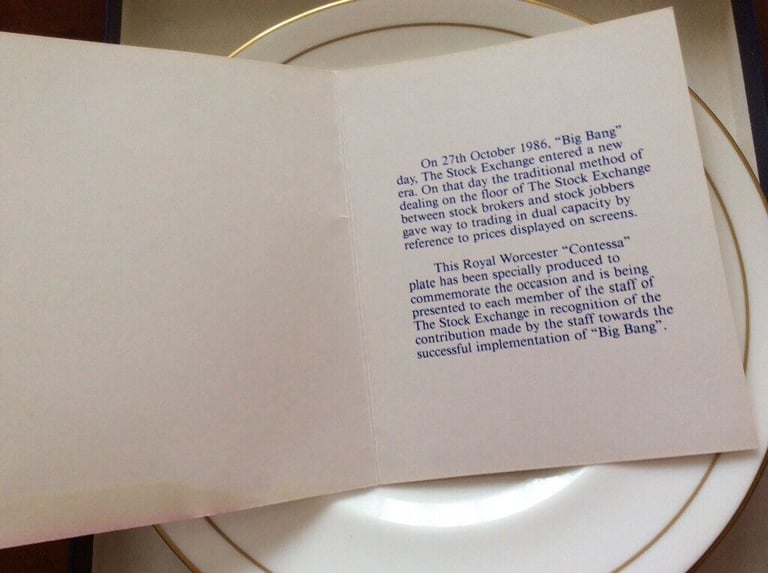 On 27th October 1986, “Big Bang”
day, The Stock Exchange entered a new
era. On that day the traditional method of
dealing on the floor of The Stock Exchange
between stock brokers and stock jobbers
gave way to trading in dual capacity by
reference to prices displayed on screens.
This Royal Worcester “Contessa”
plate has been specially produced to
commemorate the occasion and is being
presented to each member of the staff of
The Stock Exchange in recognition of the
contribution made by the staff towards the
successful implementation of “Big Bang”.